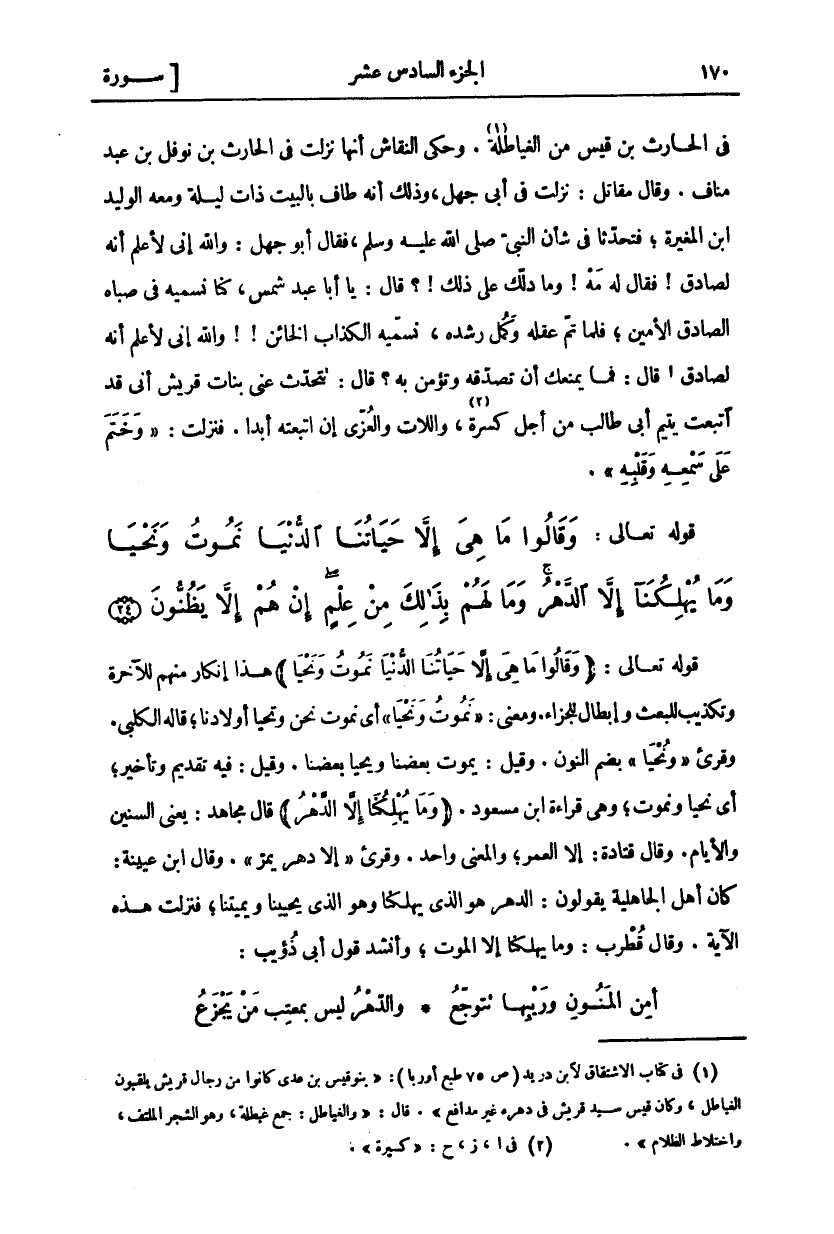 ١٧٠ الجزء السادس عشر [ ســورة
فى الحارث بن قيس من الغياطلة(١) . وحكى النقاش أنها نزلت فى الحارث بن نوفل بن عبد
مناف . وقال مقاتل : نزلت فى أبى جهل ، وذلك أنه طاف بالبيت ذات ليلة ومعه الوليد
ابن المغيرة ؛ فتحدّثا فى شأن النبىّ صلى الله عليه وسلم ، فقال أبو جهل : والله إنى لأعلم أنه
لصادق ! فقال له مَهْ ! وما دلّك على ذلك ! ؟ قال : يا أبا عبد شمس ، كنا نسميه فى صباه
الصادق الأمين ؛ فلما تمّ عقله وكَمُل رشده ، نسمّيه الكذاب الخائن ! ! والله إنى لأعلم أنه
لصادق ! قال : فما يمنعك أن تصدّقه وتؤمن به ؟ قال : تتحدّث عنى بنات قريش أنى قد
ٱتبعت يتيم أبى طالب من أجل كسرة(٢) ، واللات والعُزّى إن اتبعته أبدا . فنزلت : « وَخَتَمَ
عَلَى سَمْعِهِ وَقَلْبِهِ » .
قوله تعالى : وَقَالُوا مَا هِىَ إِلَّا حَيَاتُنَا ٱلدُّنْيَا نَمُوتُ وَنَحْيَا
وَمَا يُهْلِكُنَآ إِلَّا ٱلدَّهْرُ ۚ وَمَا لَهُم بِذَٰلِكَ مِنْ عِلْمٍ ۖ إِنْ هُمْ إِلَّا يَظُنُّونَ ﴿٢٤﴾
قوله تعالى : ﴿ وَقَالُوا مَا هِىَ إِلَّا حَيَاتُنَا الدُّنْيَا نَمُوتُ وَنَحْيَا ﴾ هذا إنكار منهم للآخرة
وتكذيب للبعث وإبطال للجزاء. ومعنى : « نَمُوتُ وَنَحْيَا » أى نموت نحن وتحيا أولادنا ؛ قاله الكلبى.
وقرئ « ونُحْيَا » بضم النون . وقيل : يموت بعضنا ويحيا بعضنا . وقيل : فيه تقديم وتأخير ؛
أى نحيا ونموت ؛ وهى قراءة ابن مسعود . ﴿ وَمَا يُهْلِكُنَا إِلَّا الدَّهْرُ ﴾ قال مجاهد : يعنى السنين
والأيام. وقال قتادة : إلا العمر ؛ والمعنى واحد . وقرئ « إلا دهر يمرّ » . وقال ابن عيينة :
كان أهل الجاهلية يقولون : الدهر هو الذى يهلكنا وهو الذى يحيينا ويميتنا ؛ فنزلت هذه
الآية . وقال قُطْرب : وما يهلكنا إلا الموت ؛ وأنشد قول أبى ذُؤيب :
أمِن المَنُونِ ورَيْبِها تتوجّعُ * والدّهْرُ ليس بمعتِب مَنْ يَجْزَعُ
(١) فى كتاب الاشتقاق لآبن دريد (ص ٧٥ طبع أوربا) : « بنو قيس بن عدى كانوا من رجال قريش يلقبون
الغياطل ، وكان قيس سيد قريش فى دهره غير مدافع » . قال : « والغياطل : جمع غيطلة ، وهو الشجر الملتف ،
واختلاط الظلام » . (٢) فى ا ، ز ، ح : « كسيرة » .